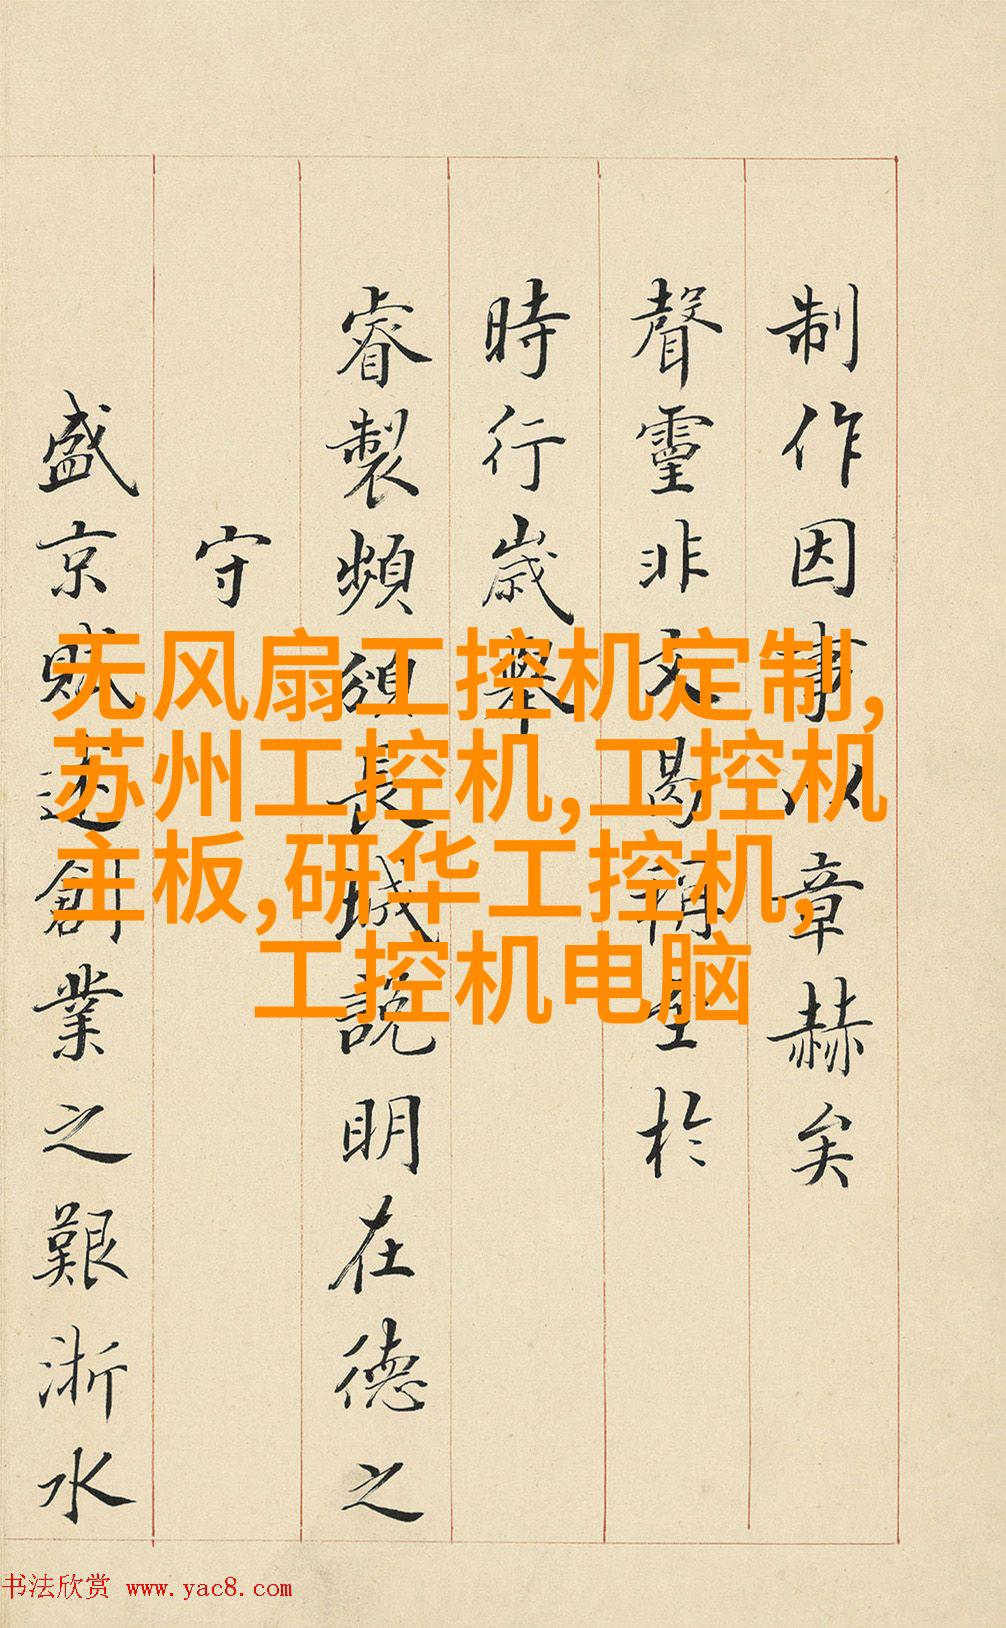 制作因事以章赫矣
聲靈非文曷稱至於
時行歲舉
睿製頻頒長城説明在德之
守
盛京賦述創業之艱浙水
无风扇工控机定制,
苏州工控机,工控机
主板,研华工控机,
工控机电脑
书法欣赏 www.yac8.com